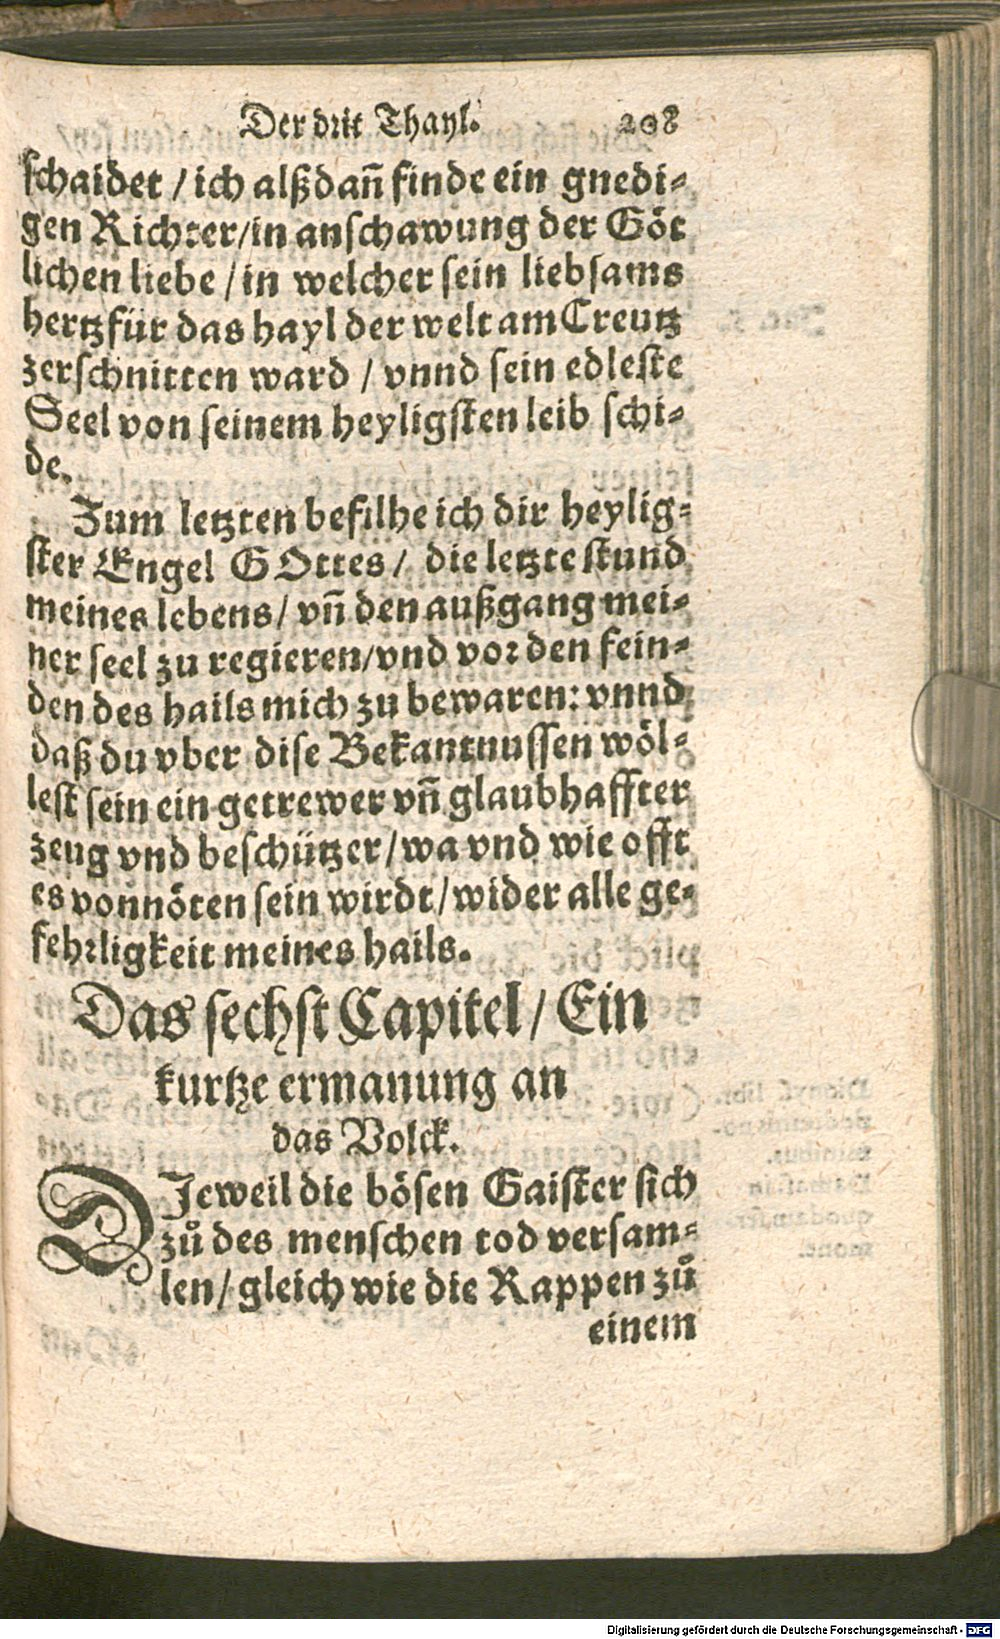 Der drit Thayl. 208
schaidet / ich alßdañ finde ein gnedi-
gen Richter/in anschawung der Göt
lichen liebe / in welcher sein liebsams
hertz für das hayl der welt am Creutz
zerschnitten ward / vnnd sein edleste
Seel von seinem heyligsten leib schi-
de.
Zum letzten befilhe ich dir heylig-
ster Engel GOttes / die letzte stund
meines lebens / vñ den außgang mei-
ner seel zu regieren/vnd vor den fein-
den des hails mich zu bewaren: vnnd
daß du vber dise Bekantnussen wöl-
lest sein ein getrewer vñ glaubhaffter
zeug vnd beschützer/wa vnd wie offt
es vonnöten sein wirdt/wider alle ge-
fehrligkeit meines hails.
Das sechst Capitel / Ein
kurtze ermanung an
das Volck.
DJeweil die bösen Gaister sich
zů des menschen tod versam-
len/ gleich wie die Rappen zů
einem
Digitalisierung gefördert durch die Deutsche Forschungsgemeinschaft - DFG